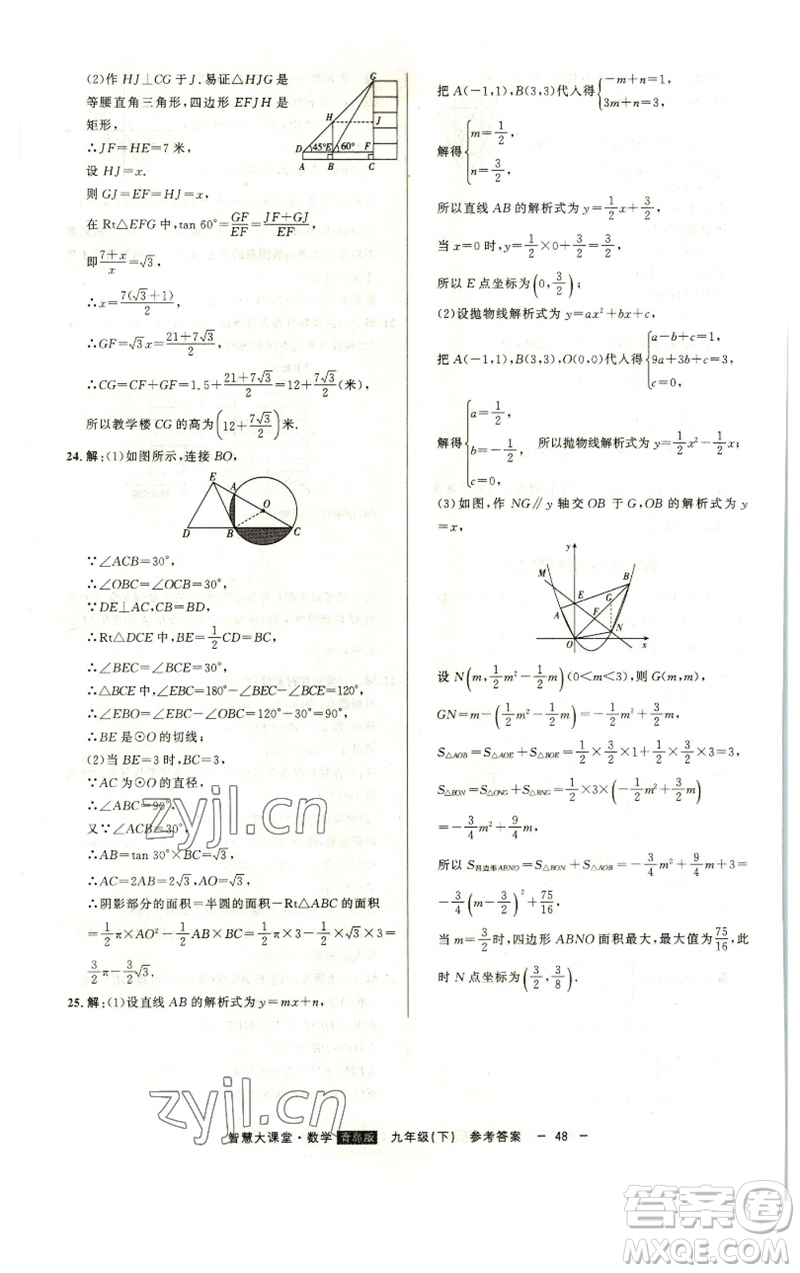 (2)作 HJ⊥CG 于 J.易证△HJG 是
等腰直角三角形,四边形 EFJH 是
矩形,
∴JF=HE=7 米,
设 HJ=x.
则 GJ=EF=HJ=x,
在 Rt△EFG 中,tan 60°=GF/EF=(JF+GJ)/EF,
即(7+x)/x=√3,
∴x=7(√3+1)/2,
∴GF=√3x=(21+7√3)/2,
∴CG=CF+GF=1.5+(21+7√3)/2=12+7√3/2(米),
所以教学楼 CG 的高为(12+7√3/2)米.
G
H
J
D
45°
E
60°
F
A
B
C
24.解:(1)如图所示,连接 BO,
E
A
O
D
B
C
∵∠ACB=30°,
∴∠OBC=∠OCB=30°,
∵DE⊥AC,CB=BD,
∴Rt△DCE 中,BE=1/2CD=BC,
∴∠BEC=∠BCE=30°,
∴△BCE 中,∠EBC=180°-∠BEC-∠BCE=120°,
∴∠EBO=∠EBC-∠OBC=120°-30°=90°,
∴BE 是⊙O 的切线;
(2)当 BE=3 时,BC=3,
∵AC 为⊙O 的直径,
∴∠ABC=90°,
又∵∠ACB=30°,
∴AB=tan 30°×BC=√3,
∴AC=2AB=2√3,AO=√3,
∴阴影部分的面积=半圆的面积-Rt△ABC 的面积
=1/2π×AO²-1/2AB×BC=1/2π×3-1/2×√3×3=
3/2π-3/2√3.
25.解:(1)设直线 AB 的解析式为 y=mx+n,
把 A(-1,1),B(3,3)代入得{-m+n=1,
3m+n=3,
解得{m=1/2,
n=3/2,
所以直线 AB 的解析式为 y=1/2x+3/2,
当 x=0 时,y=1/2×0+3/2=3/2,
所以 E 点坐标为(0,3/2);
(2)设抛物线解析式为 y=ax²+bx+c,
把 A(-1,1),B(3,3),O(0,0)代入得{a-b+c=1,
9a+3b+c=3,
c=0,
解得{a=1/2,
b=-1/2,
c=0,
所以抛物线解析式为 y=1/2x²-1/2x;
(3)如图,作 NG∥y 轴交 OB 于 G,OB 的解析式为 y
=x,
y
M
B
E
G
A
F
N
O
x
设 N(m,1/2m²-1/2m)(0<m<3),则 G(m,m),
GN=m-(1/2m²-1/2m)=-1/2m²+3/2m,
S△AOB=S△AOE+S△BOE=1/2×3/2×1+1/2×3/2×3=3,
S△BON=S△ONG+S△BNG=1/2×3×(-1/2m²+3/2m)
=-3/4m²+9/4m,
所以 S四边形ABNO=S△BON+S△AOB=-3/4m²+9/4m+3=
-3/4(m-3/2)²+75/16,
当 m=3/2时,四边形 ABNO 面积最大,最大值为75/16,此
时 N 点坐标为(3/2,3/8).
zyjl.cn
zyjl.cn
智慧大课堂·数学 青岛版 九年级(下) 参考答案 — 48 —
答案卷
MXQE.COM